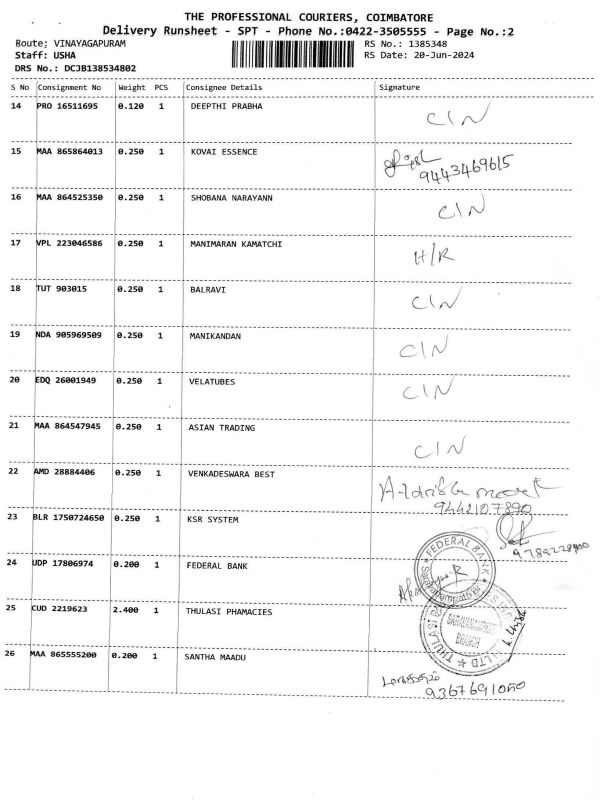 THE PROFESSIONAL COURIERS, COIMBATORE
Delivery Runsheet - SPT - Phone No.:0422-3505555 - Page No.:2
Route; VINAYAGAPURAM RS No.: 1385348
Staff: USHA RS Date: 20-Jun-2024
DRS No.: DCJB138534802
S No Consignment No Weight PCS Consignee Details Signature
14 PRO 16511695 0.120 1 DEEPTHI PRABHA C/N
15 MAA 865864013 0.250 1 KOVAI ESSENCE
9443469615
16 MAA 864525350 0.250 1 SHOBANA NARAYANN C/N
17 VPL 223046586 0.250 1 MANIMARAN KAMATCHI H/R
18 TUT 903015 0.250 1 BALRAVI C/N
19 NDA 905969509 0.250 1 MANIKANDAN C/N
20 EDQ 26001949 0.250 1 VELATUBES C/N
21 MAA 864547945 0.250 1 ASIAN TRADING C/N
22 AMD 28884406 0.250 1 VENKADESWARA BEST
9442107890
23 BLR 1750724650 0.250 1 KSR SYSTEM
24 UDP 17806974 0.200 1 FEDERAL BANK
FEDERAL BANK
25 CUD 2219623 2.400 1 THULASI PHAMACIES
BRANCH
26 MAA 865555200 0.200 1 SANTHA MAADU
9367691050